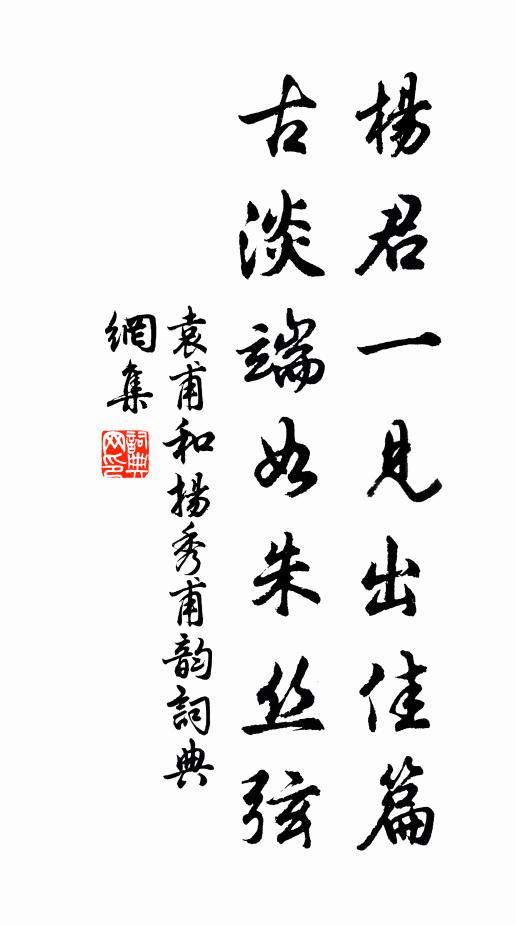 楊君一見出佳篇
古淡端如朱丝弦
袁甫和揚秀甫韵詞典
網集
詞典网印